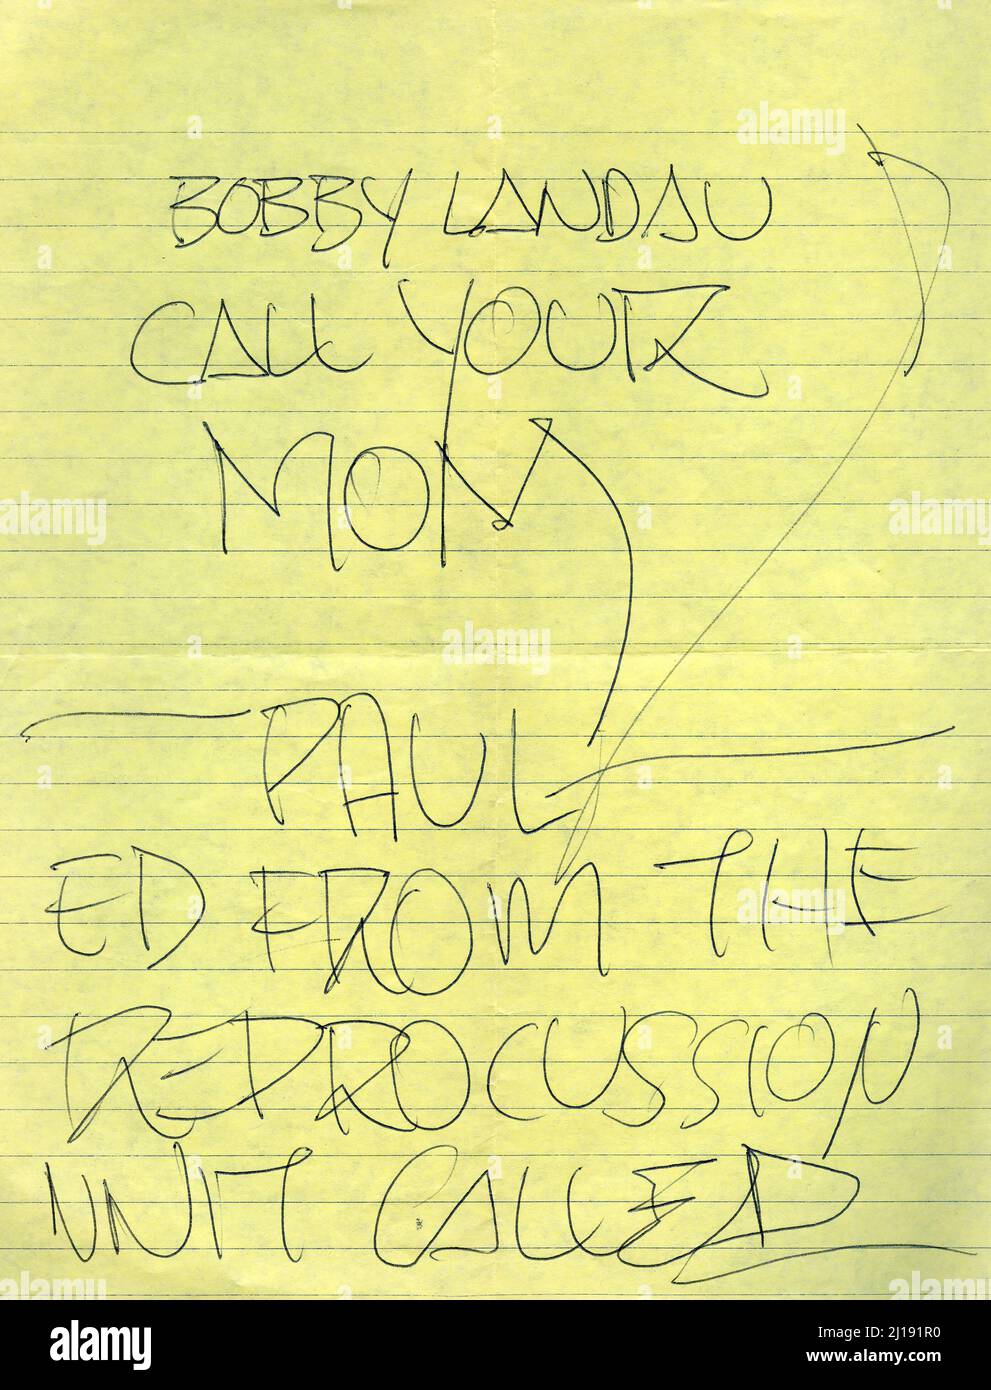 BOBBY LANDAU
CALL YOUR
MOM
PAUL
ED FROM THE
REPROCUSSION
UNIT CALLED
alamy
alamy
Image ID: 2J191R0
www.alamy.com